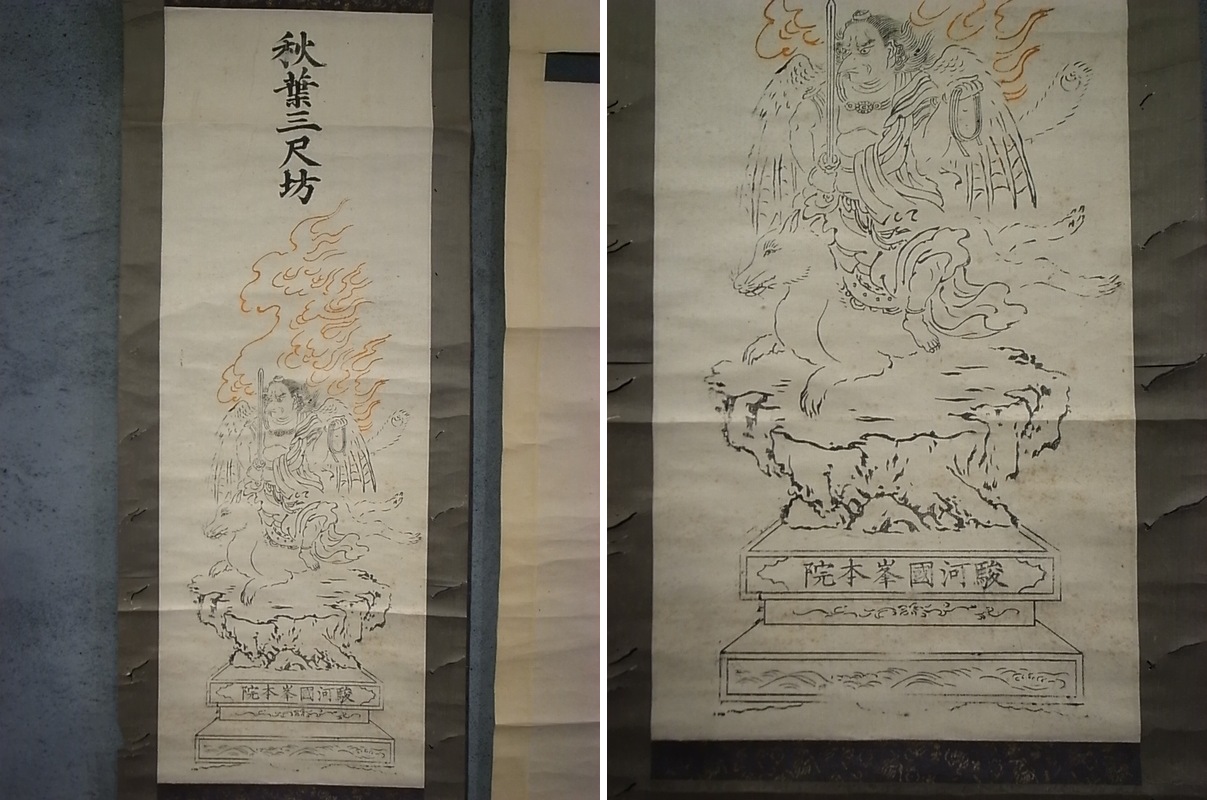 秋葉三尺坊
駿河國峯本院
駿河國峯本院